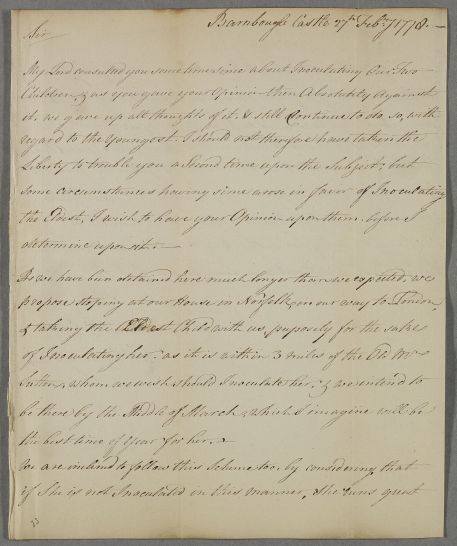 Barnbougle Castle 27th Feby 1778.—
Sir
My Lord consulted you sometime since about Inoculating our Two
Children, & as you gave your Opinion then Absolutely against
it, we gave up all thoughts of it, & still Continue to do so, with
regard to the Youngest. I should not therefore have taken the
Liberty to trouble you a Second time upon the Subject, but
some circumstances having since arose in favor of Inoculating
the Eldest, I wish to have your Opinion upon them before I
determine upon it.—
As we have been detained here much longer than we expected, we
propose stoping at our House in Norfolk, on our way to London,
& taking the Eldest Child with us, purposely for the sake
of Inoculating her: as it is within 3 miles of the
Sutton, whom we wish should Inoculate her, & we intend to
be there by the Middle of March, which I imagine will be
the best time of Year for her.
We are inclined to follow this Scheme too, by considering that
if She is not Inoculated in this manner, She runs great
23